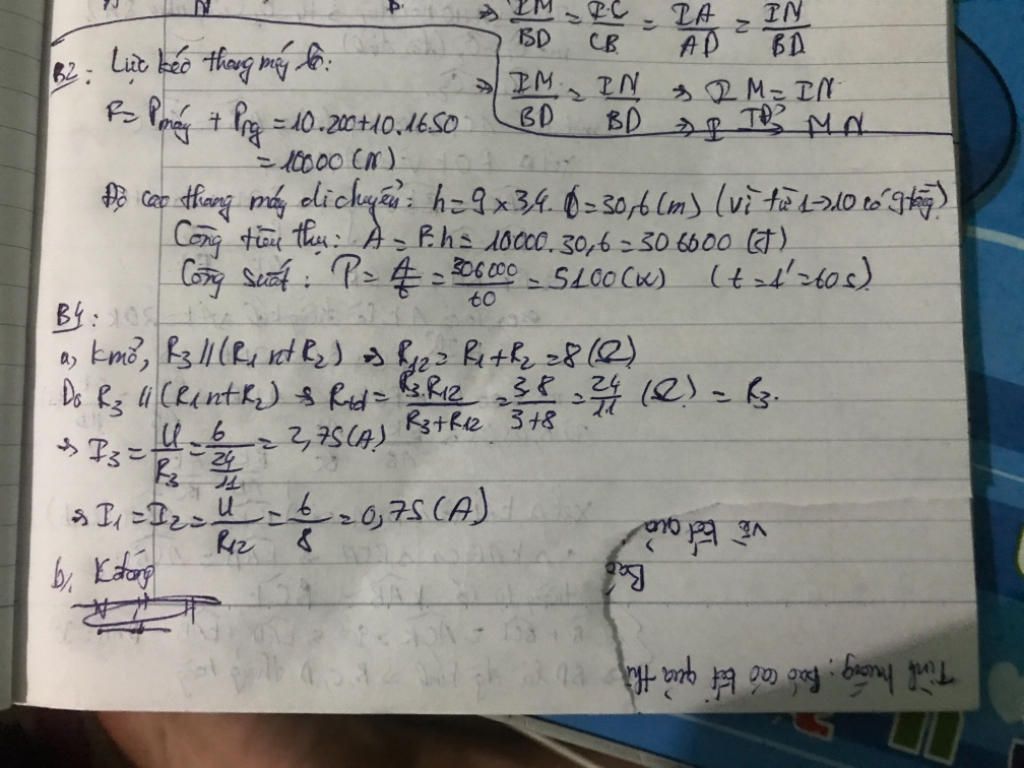 IM/BD = IC/CB = IA/AD = IN/BD
B2: Lực kéo thang máy là:
⇒ IM/BD = IN/BD ⇒ IM = IN
F = Pmáy + Png = 10.200 + 10.16.50
⇒ I TĐ MN
= 10000 (N)
Độ cao thang máy di chuyển: h = 9 x 3,4 = 30,6 (m) (vì từ 1→10 có 9 tầng)
Công tiêu thụ: A = P.h = 10000.30,6 = 306000 (J)
Công suất: P = A/t = 306000/60 = 5100 (W) (t = 1' = 60s)
B4:
a, K mở, R3 // (R1 nt R2) ⇒ R12 = R1 + R2 = 8 (Ω)
Do R3 // (R1 nt R2) ⇒ Rtđ = R3.R12/R3+R12 = 3.8/3+8 = 24/11 (Ω) = R3.
⇒ I3 = U/R3 = 6/(24/11) = 2,75 (A)
⇒ I1 = I2 = U/R12 = 6/8 = 0,75 (A)
b, K đóng
về kết quả
Báo
Tình huống: Báo cáo kết quả thi